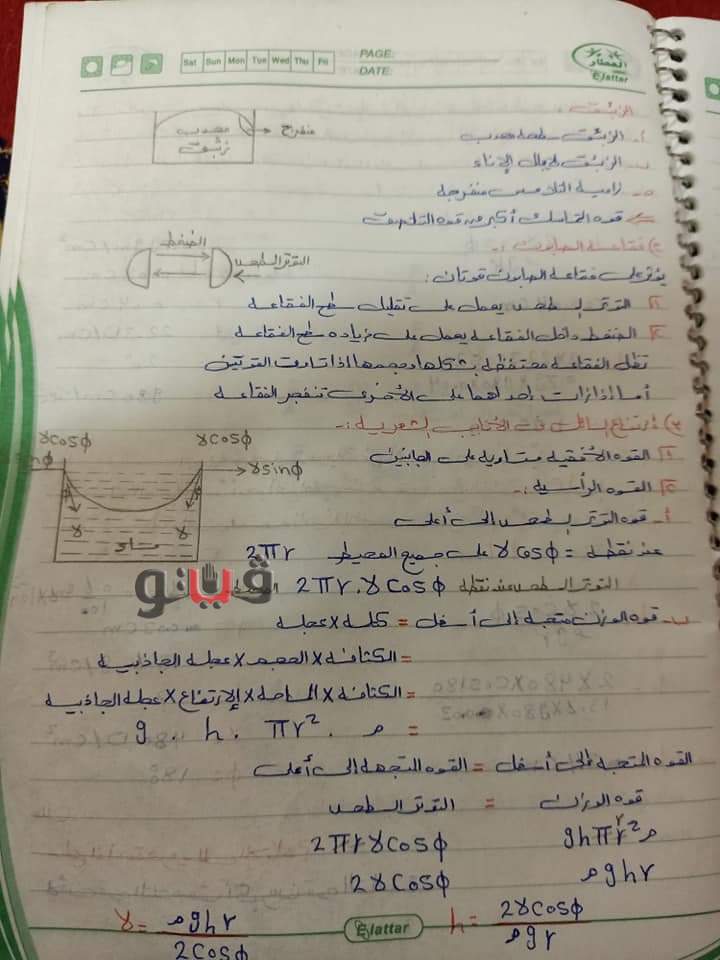 Sat Sun Mon Tue Wed Thu Fri
PAGE:
DATE:
العطار
Elattar
الزئبق:
أ- الزئبق سطحه محدب
محدب
زئبق
منفرج
ب- الزئبق لا يبلل الإناء
زاوية التلامس منفرجة
قوه التماسك أكبر من قوه التلاصق
٢) فقاعة الصابون:-
الضغط
التوتر السطحى
يؤثر على فقاعة الصابون قوتان:
١ التوتر السطحى يعمل على تقليل سطح الفقاعة
٢ الضغط داخل الفقاعة يعمل على زياده سطح الفقاعة
تظل الفقاعة محتفظة بشكلها وحجمها اذا تساوت القوتين
أما إذا زادت احداهما على الأخرى تنفجر الفقاعة
٣) إرتفاع السائل فى الأنابيب الشعرية:-
γcosφ
γcosφ
γsinφ
γ
γ
ماء
١ القوه الأفقية متساوية على الجانبين
٢ القوه الرأسية:-
أ- قوه التوتر السطحى إلى أعلى
عند نقطة = γcosφ على جميع المحيط 2πr
التوتر السطحى عند نقطة 2πr.γcosφ
ڤيتو
ب- قوه الوزن متجهة إلى أسفل = كتلة × عجلة
= الكثافة × الحجم × عجلة الجاذبية
= الكثافة × المساحة × الإرتفاع × عجلة الجاذبية
= م . πr² . h . g
القوه المتجهة إلى أسفل = القوه المتجهة إلى أعلى
قوه الوزن = التوتر السطحى
م ghπr² 2πrγcosφ
م ghr 2γcosφ
h = 2γcosφ / م gr
γ = م ghr / 2cosφ
Elattar